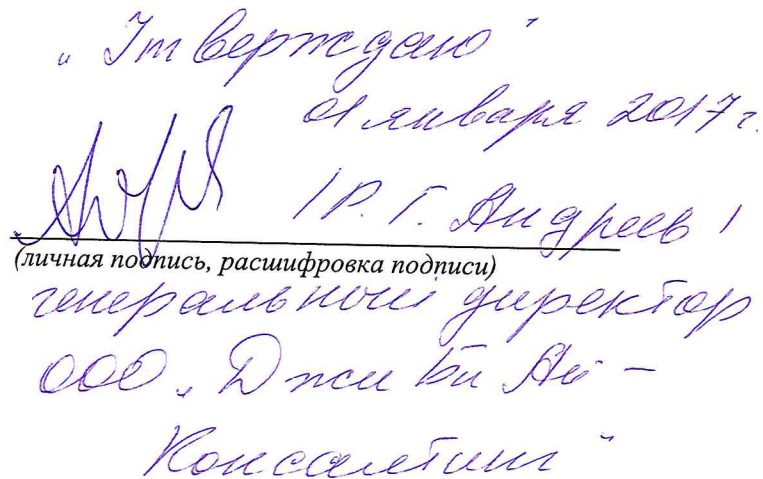 „Утверждаю"
01 января 2017 г.
/Р. Г. Андреев/
(личная подпись, расшифровка подписи)
генеральный директор
ООО „Джи Би Ай –
Консалтинг"